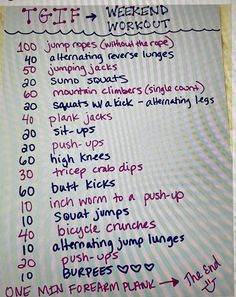 TGIF → WEEKEND WORKOUT
100 jump ropes (without the rope)
40 alternating reverse lunges
50 jumping jacks
20 sumo squats
60 mountain climbers (single count)
20 squats w/a kick - alternating legs
40 plank jacks
20 sit-ups
20 push-ups
60 high knees
30 tricep crab dips
60 butt kicks
10 inch worm to a push-up
10 squat jumps
40 bicycle crunches
10 alternating jump lunges
20 push-ups
10 BURPEES ♡♡♡
ONE MIN FOREARM PLANK → The End